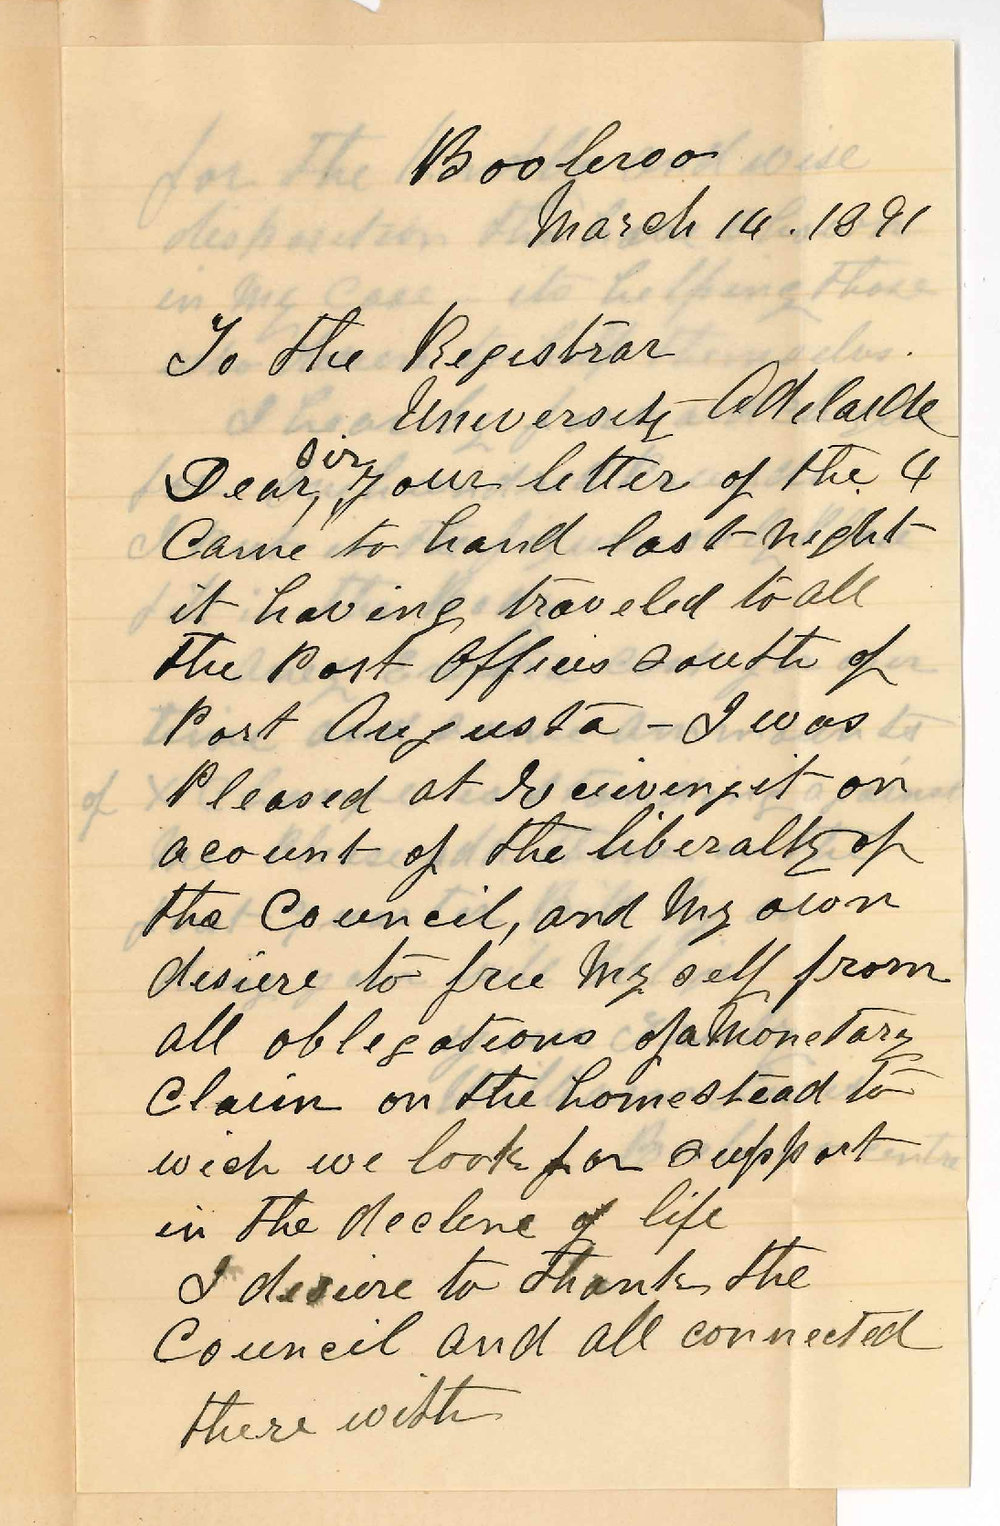 Booleroo
March 14. 1891
To the Registrar
University Adelaide
Dear Sir, Your letter of the 4
Came to hand last night
it having traveled to all
the Post Offices south of
Port Augusta – I was
Pleased at Receiving it on
acount of the liberalty of
the Council, and My own
desiere to free My self from
all oblegations of a Monetary
Claim on the homestead to
wich we look for support
in the declene of life
I desiere to thank the
Council and all connected
there with